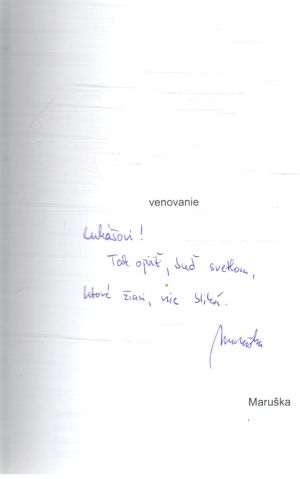 venovanie
Lukášovi!
Tak opäť, buď svetlom,
ktoré žiari, nie bliká.
Maruška
Maruška